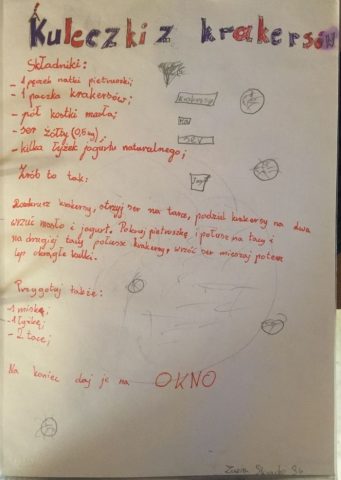 Kuleczki z krakersów
Składniki:
- 1 pęczek natki pietruszki;
- 1 paczka krakersów;
- pół kostki masła;
- ser żółty (0,5 kg);
- kilka łyżek jogurtu naturalnego;
Zrób to tak:
krakersy, zetrzyj ser na tarce, podziel krakersy na dwa
wrzuć masło i jogurt. Pokrój pietruszkę i połóż na tacy i
na drugiej tacy połóż krakersy, wrzóć ser mieszaj potem
lep okrągłe kulki.
Przygotuj także:
- 1 miskę;
- 1 łyżkę;
- 2 tace;
Na koniec daj je na OKNO